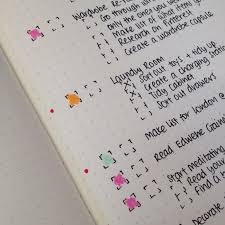 Wardrobe Re-
Go through
Only the ones you
Make list of what items you
Research on Pinterest
Create a wardrobe capsule
Laundry Room
x Sort out toys + tidy up
x Create a charging station
Tidy cabinets
x Sort out drawers
Make list for London @
Read Edwene Gain
Start meditating
Read your
Find a
Decorate